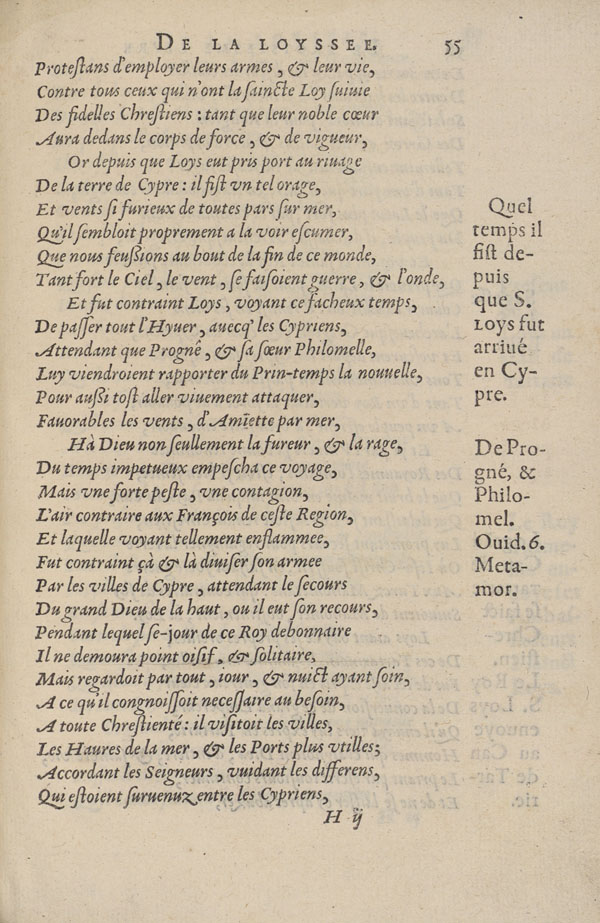 DE LA LOYSSEE. 55
Proteſtans d'employer leurs armes, & leur vie,
Contre tous ceux qui n'ont la ſaincte Loy ſuiuie
Des fidelles Chreſtiens : tant que leur noble cœur
Aura dedans le corps de force, & de vigueur,
Or depuis que Loys eut pris port au riuage
De la terre de Cypre : il fiſt vn tel orage,
Et vents ſi furieux de toutes pars ſur mer,
Qu'il ſembloit proprement a la voir eſcumer,
Que nous feuſſions au bout de la fin de ce monde,
Tant fort le Ciel, le vent, ſe faiſoient guerre, & l'onde,
Et fut contraint Loys, voyant ce facheux temps,
De paſſer tout l'Hyuer, auecq' les Cypriens,
Attendant que Progné, & ſa ſœur Philomelle,
Luy viendroient rapporter du Prin-temps la nouuelle,
Pour auſſi toſt aller viuement attaquer,
Fauorables les vents, d'Amīette par mer,
Hà Dieu non ſeullement la fureur, & la rage,
Du temps impetueux empeſcha ce voyage,
Mais vne forte peſte, vne contagion,
L'air contraire aux François de ceſte Region,
Et laquelle voyant tellement enflammee,
Fut contraint çà & là diuiſer ſon armee
Par les villes de Cypre, attendant le ſecours
Du grand Dieu de la haut, ou il eut ſon recours,
Pendant lequel ſe-jour de ce Roy debonnaire
Il ne demoura point oiſif, & ſolitaire,
Mais regardoit par tout, iour, & nuict ayant ſoin,
A ce qu'il congnoiſſoit neceſſaire au beſoin,
A toute Chreſtienté : il viſitoit les villes,
Les Haures de la mer, & les Ports plus vtilles;
Accordant les Seigneurs, vuidant les differens,
Qui eſtoient ſuruenuz entre les Cypriens,
H ij
Quel
temps il
fiſt de-
puis
que S.
Loys fut
arriué
en Cy-
pre.
De Pro-
gné, &
Philo-
mel.
Ouid. 6.
Meta-
mor.